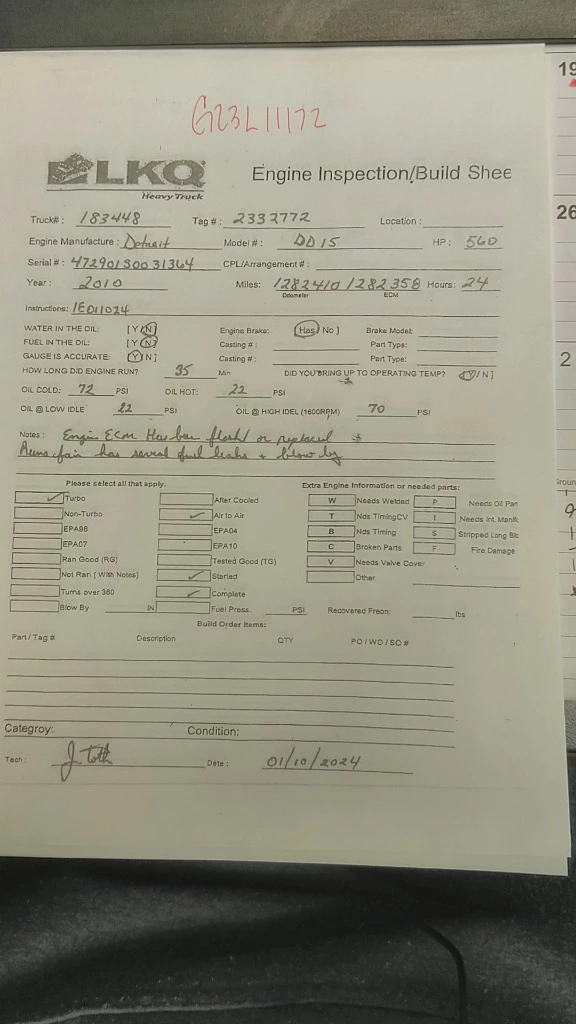 G23L11172
LKQ Heavy Truck
Engine Inspection/Build Shee
Truck#: 183448 Tag #: 2332772 Location:
Engine Manufacture: Detroit Model #: DD15 HP: 560
Serial #: 472901S0031364 CPL/Arrangement #:
Year: 2010 Miles: 1282410 1282358 Hours: 24
Odometer ECM
Instructions: 1E011024
WATER IN THE OIL: [Y/N] Engine Brake: [Has/ No] Brake Model:
FUEL IN THE OIL: [Y/N] Casting #: Part Type:
GAUGE IS ACCURATE: [Y/N] Casting #: Part Type:
HOW LONG DID ENGINE RUN? 35 Min DID YOU BRING UP TO OPERATING TEMP? [Y/N]
OIL COLD: 72 PSI OIL HOT: 22 PSI
OIL @ LOW IDLE 22 PSI OIL @ HIGH IDEL (1600RPM) 70 PSI
Notes: Engin Ecm Has been flashd or replaced +
Runs fair has several fuel leaks + blow by
Please select all that apply. Extra Engine Information or needed parts:
Turbo After Cooled W Needs Welded P Needs Oil Pan
Non-Turbo Air to Air T Nds TimingCV I Needs Int. Manifk
EPA98 EPA04 B Nds Timing S Stripped Long Blc
EPA07 EPA10 C Broken Parts F Fire Damage
Ran Good (RG) Tested Good (TG) V Needs Valve Cover
Not Ran ( With Notes) Started Other
Turns over 360 Complete
Blow By IN Fuel Press. PSI Recovered Freon: lbs
Build Order Items:
Part / Tag # Description QTY PO / WO / SO #
Categroy: Condition:
Tech: J Toth Date: 01/10/2024
19
26
2